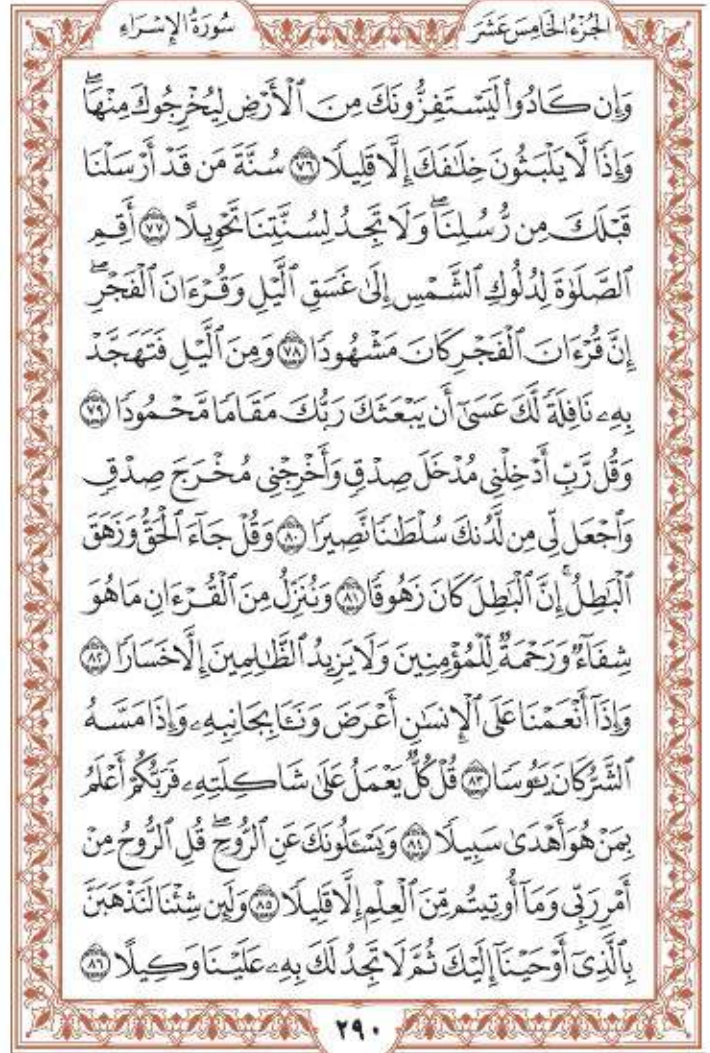 الجزء الخامس عشر
سورة الإسراء
وَإِن كَادُوا۟ لَيَسْتَفِزُّونَكَ مِنَ ٱلْأَرْضِ لِيُخْرِجُوكَ مِنْهَا ۖ
وَإِذًا لَّا يَلْبَثُونَ خِلَٰفَكَ إِلَّا قَلِيلًا ٧٦ سُنَّةَ مَن قَدْ أَرْسَلْنَا
قَبْلَكَ مِن رُّسُلِنَا ۖ وَلَا تَجِدُ لِسُنَّتِنَا تَحْوِيلًا ٧٧ أَقِمِ
ٱلصَّلَوٰةَ لِدُلُوكِ ٱلشَّمْسِ إِلَىٰ غَسَقِ ٱلَّيْلِ وَقُرْءَانَ ٱلْفَجْرِ ۖ
إِنَّ قُرْءَانَ ٱلْفَجْرِ كَانَ مَشْهُودًا ٧٨ وَمِنَ ٱلَّيْلِ فَتَهَجَّدْ
بِهِۦ نَافِلَةً لَّكَ عَسَىٰٓ أَن يَبْعَثَكَ رَبُّكَ مَقَامًا مَّحْمُودًا ٧٩
وَقُل رَّبِّ أَدْخِلْنِى مُدْخَلَ صِدْقٍ وَأَخْرِجْنِى مُخْرَجَ صِدْقٍ
وَٱجْعَل لِّى مِن لَّدُنكَ سُلْطَٰنًا نَّصِيرًا ٨٠ وَقُلْ جَآءَ ٱلْحَقُّ وَزَهَقَ
ٱلْبَٰطِلُ ۚ إِنَّ ٱلْبَٰطِلَ كَانَ زَهُوقًا ٨١ وَنُنَزِّلُ مِنَ ٱلْقُرْءَانِ مَا هُوَ
شِفَآءٌ وَرَحْمَةٌ لِّلْمُؤْمِنِينَ ۙ وَلَا يَزِيدُ ٱلظَّٰلِمِينَ إِلَّا خَسَارًا ٨٢
وَإِذَآ أَنْعَمْنَا عَلَى ٱلْإِنسَٰنِ أَعْرَضَ وَنَـَٔا بِجَانِبِهِۦ ۖ وَإِذَا مَسَّهُ
ٱلشَّرُّ كَانَ يَـُٔوسًا ٨٣ قُلْ كُلٌّ يَعْمَلُ عَلَىٰ شَاكِلَتِهِۦ فَرَبُّكُمْ أَعْلَمُ
بِمَنْ هُوَ أَهْدَىٰ سَبِيلًا ٨٤ وَيَسْـَٔلُونَكَ عَنِ ٱلرُّوحِ ۖ قُلِ ٱلرُّوحُ مِنْ
أَمْرِ رَبِّى وَمَآ أُوتِيتُم مِّنَ ٱلْعِلْمِ إِلَّا قَلِيلًا ٨٥ وَلَئِن شِئْنَا لَنَذْهَبَنَّ
بِٱلَّذِىٓ أَوْحَيْنَآ إِلَيْكَ ثُمَّ لَا تَجِدُ لَكَ بِهِۦ عَلَيْنَا وَكِيلًا ٨٦
٢٩٠